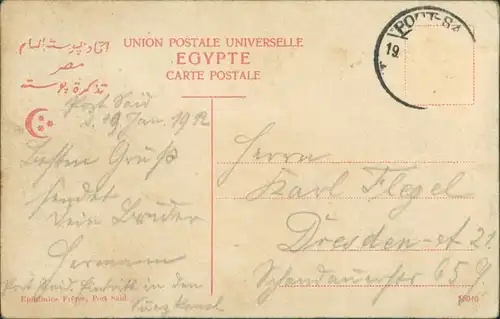 UNION POSTALE UNIVERSELLE
EGYPTE
CARTE POSTALE
اتحاد بوستة العام
مصر
تذكرة بوستة
PORT-SA
19
Port Said
d. 19 Jan. 1912
Besten Gruß
sendet
Dein Bruder
Hermann
Port Said. Eintritt in den
Suez Kanal
Herrn
Karl Flegel
Dresden-
21
Schandauerstr 65
Ephtimios Frères, Port Said.